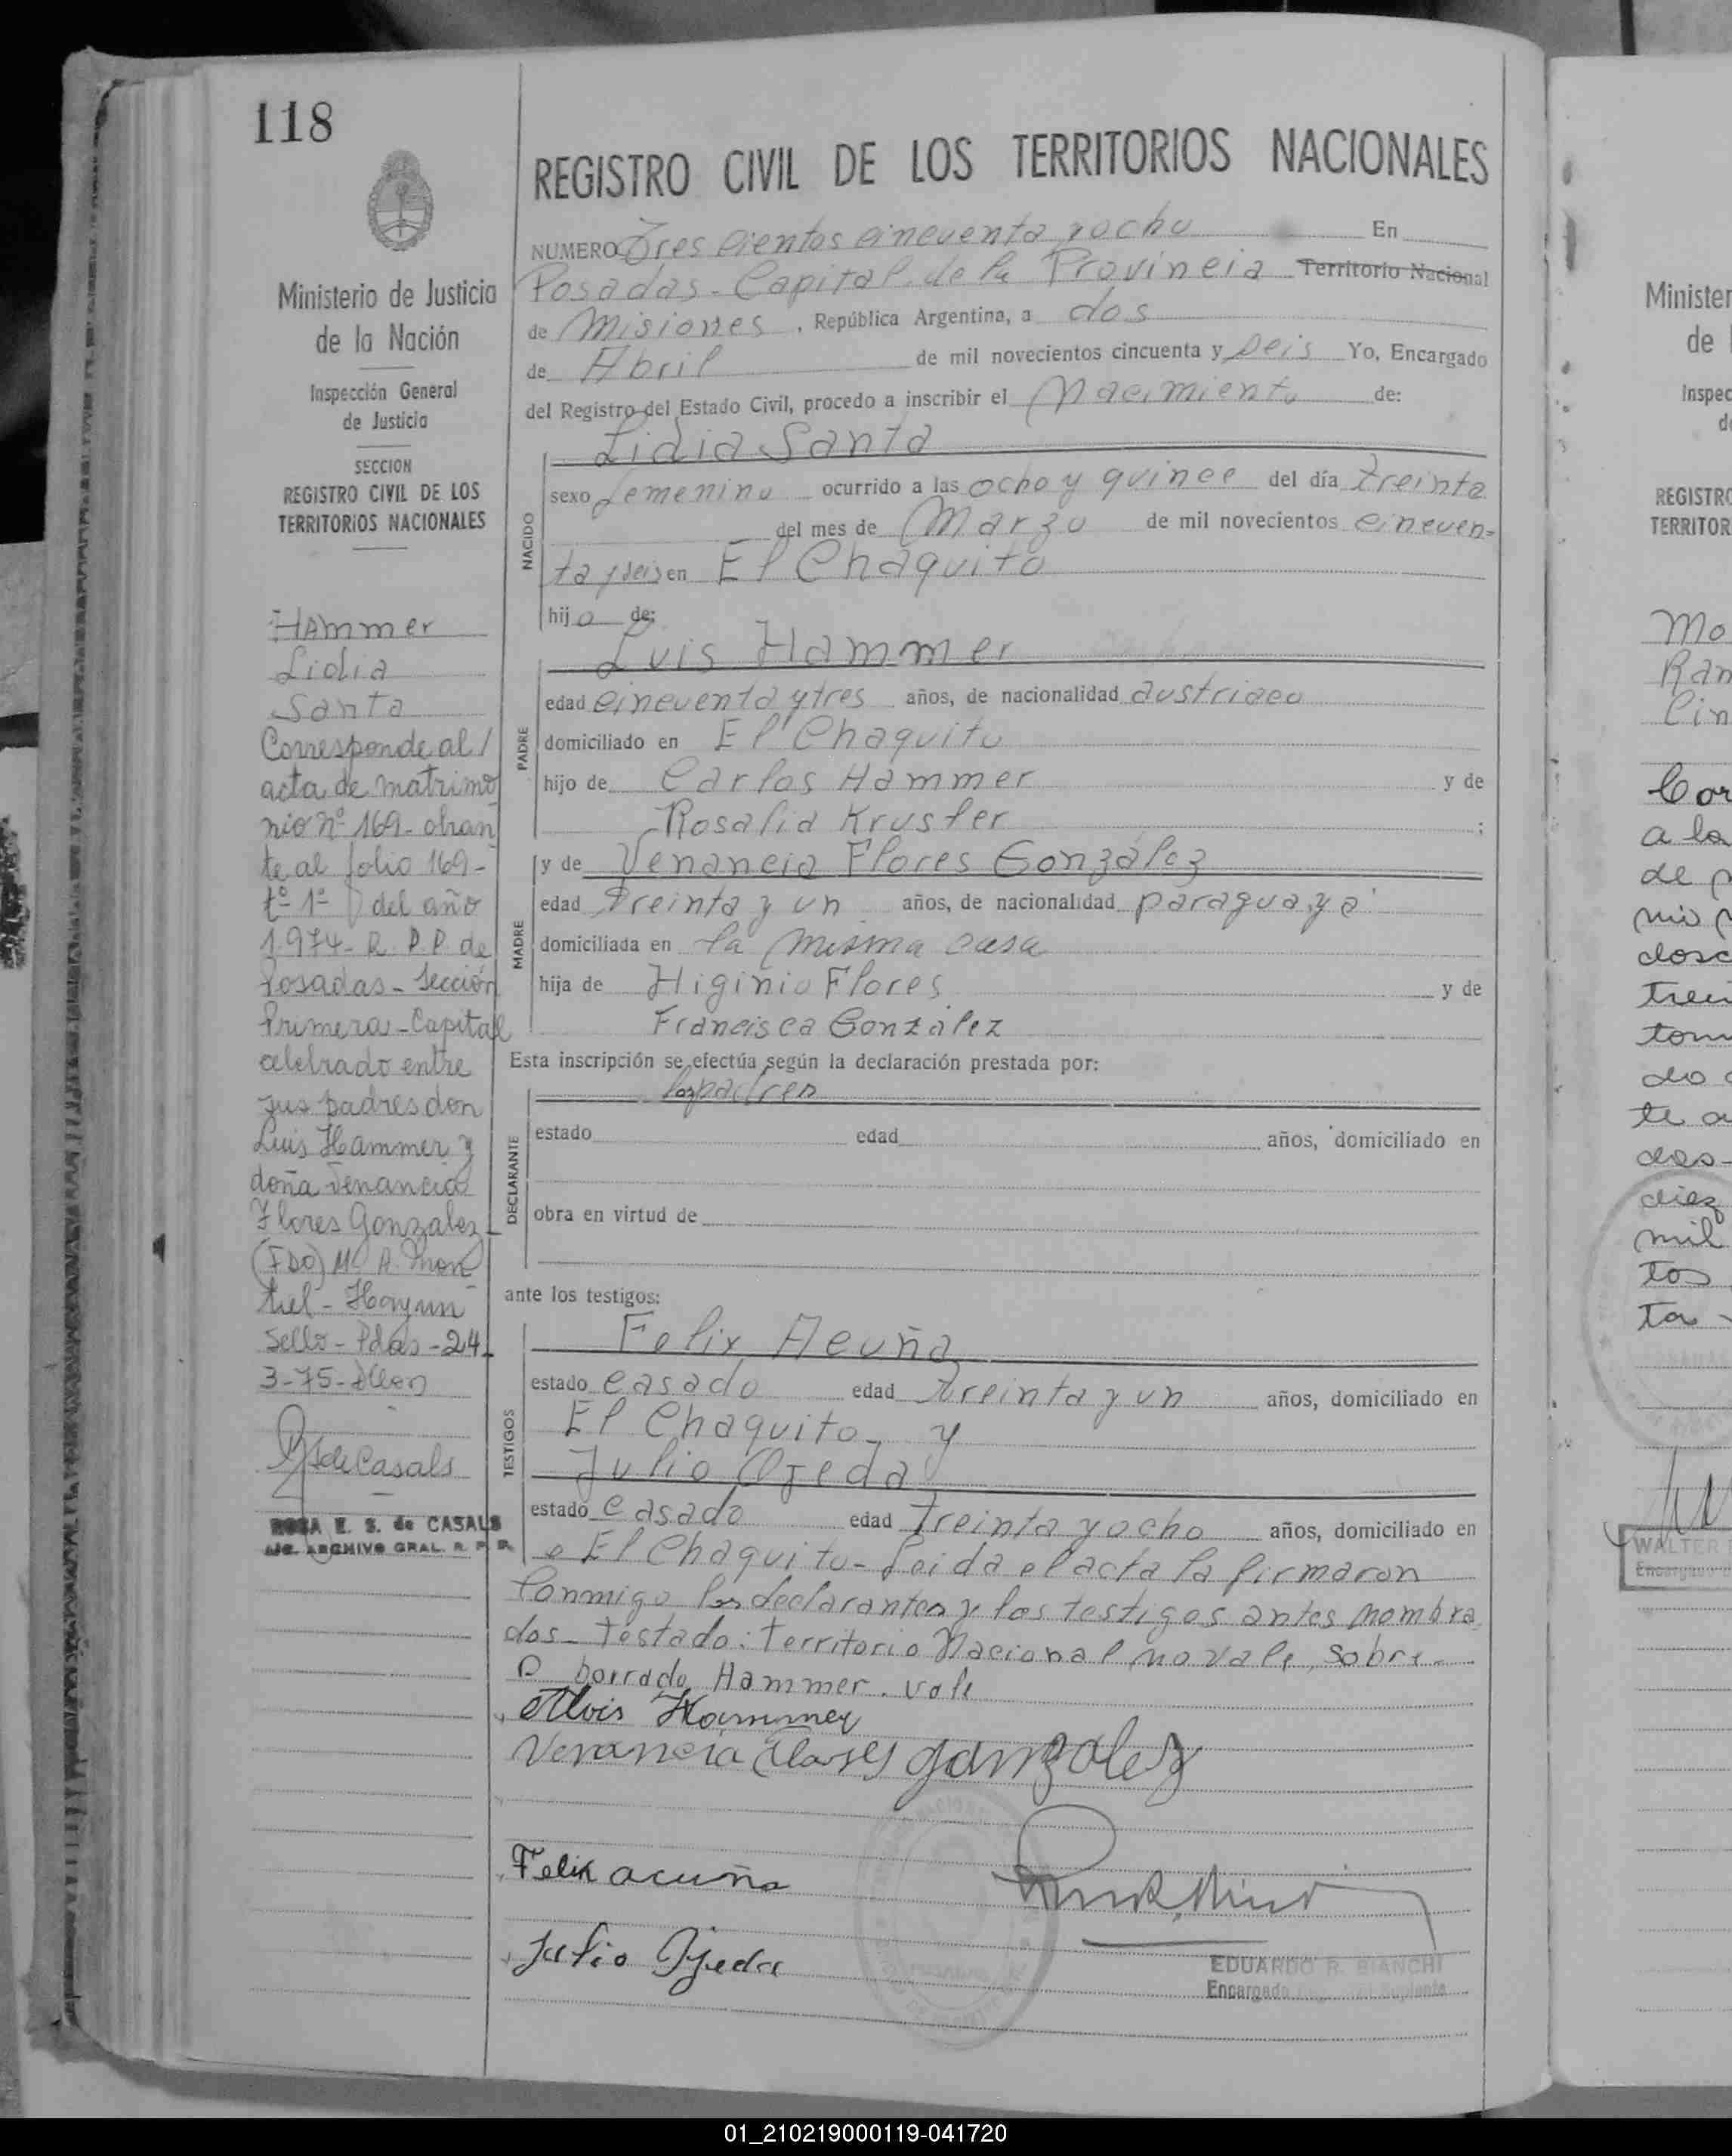 118
REGISTRO CIVIL DE LOS TERRITORIOS NACIONALES
NUMERO Tres cientos cincuenta y ocho En
Posadas - Capital de la Provincia Territorio Nacional
de Misiones, República Argentina, a dos
de Abril de mil novecientos cincuenta y seis Yo, Encargado
del Registro del Estado Civil, procedo a inscribir el Nacimiento de:
Lidia Santa
NACIDO
sexo femenino ocurrido a las ocho y quince del día treinta
del mes de Marzo de mil novecientos cincuen=
ta y seis en El Chaquito
hija de:
Luis Hammer
PADRE
edad cincuenta y tres años, de nacionalidad austriaco
domiciliado en El Chaquito
hijo de Carlos Hammer y de
Rosalia Kruster ;
y de Venancia Flores González
MADRE
edad treinta y un años, de nacionalidad paraguaya
domiciliada en la misma casa
hija de Higinio Flores y de
Francisca González
Esta inscripción se efectúa según la declaración prestada por:
los padres
DECLARANTE
estado edad años, domiciliado en
obra en virtud de
ante los testigos:
Felix Acuña
TESTIGOS
estado casado edad treinta y un años, domiciliado en
El Chaquito - y
Julio Ojeda
estado casado edad treinta y ocho años, domiciliado en
El Chaquito - Leida el acta la firmaron
Conmigo los declarantes y los testigos antes nombra
dos - Testado: Territorio Nacional no vale, sobre
borrado Hammer. vale
Alois Hammer
Venancia Flores gonzalez
Felix acuña
Julio Ojeda
EDUARDO R. BIANCHI
Encargado Suplente
Ministerio de Justicia
de la Nación
Inspección General
de Justicia
SECCION
REGISTRO CIVIL DE LOS
TERRITORIOS NACIONALES
Hammer
Lidia
Santa
Corresponde al /
acta de matrimo
nio Nº 169 - obran
te al folio 169 -
tº 1º del año
1.974 - R. P. P. de
Posadas - Sección
Primera - Capital
celebrado entre
sus padres don
Luis Hammer y
doña Venancia
Flores Gonzalez -
(FDO) M. A. Mon
tiel - Hay un
Sello - Pdas - 24
3-75-
de Casals
ROSA E. S. de CASALS
ARCHIVO GRAL. R. P. P.
Minister
de
Inspec
REGISTRO
TERRITOR
Mo
Ram
Cin
Cor
a la
de p
nio
dosc
trei
tom
do
te a
dos -
diez
mil
tos
ta
WALTER
Encargado
01_210219000119-041720